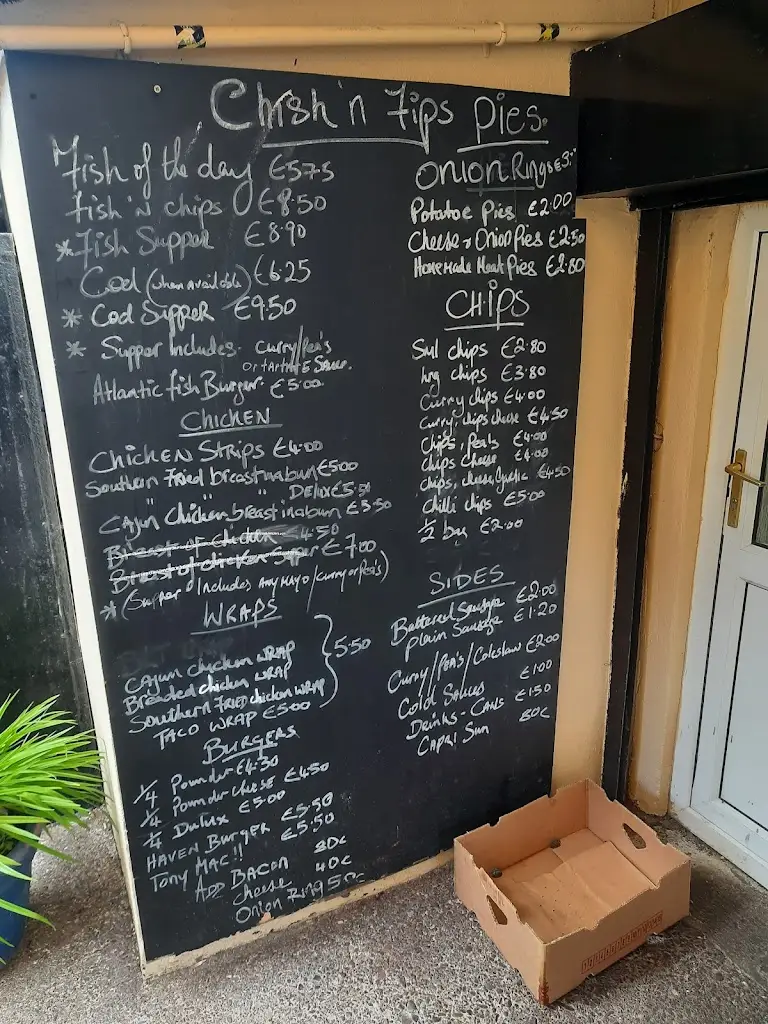 Chish 'n Fips
Fish of the day €5.75
Fish 'N chips €8.50
* Fish Supper €8.90
Cod (when available) €6.25
* Cod Supper €9.50
* Supper Includes. Curry/Pea's
or tartare Sauce.
Atlantic fish Burger. €5.00
CHICKEN
CHICKEN STRIPS €4.00
Southern Fried breast in a bun €5.00
" " " DELUX €5.50
CAJUN Chicken breast in a bun €5.50
Breast of chicken 4.50
Breast of chicken Super €7.00
* (Supper Includes ANY MAYO/Curry or Pea's)
WRAPS
Cajun chicken WRAP
Breaded chicken WRAP } 5.50
Southern FRIED chicken WRAP
TACO WRAP €5.00
BURGERS
1/4 Pounder €4.30
1/4 Pounder Cheese €4.50
1/4 Delux €5.00
HAVEN BURGER €5.50
TONY MAC!! €5.50
ADD BACON 80c
Cheese 40c
Onion RING 50c
Pies.
ONION Rings €3.
Potatoe Pies €2.00
Cheese & Onion Pies €2.50
Homemade Meat Pies €2.80
CHIPS
Sml chips €2.80
Lrg chips €3.80
Curry chips €4.00
Curry, chips cheese €4.50
Chips, Peas €4.00
Chips Cheese €4.00
chips, cheese, Garlic €4.50
Chilli chips €5.00
1/2 bag €2.00
SIDES
Battered Sausage €2.00
Plain Sausage €1.20
Curry/Pea's/Coleslaw €2.00
Cold Sauces €1.00
Drinks - Cans €1.50
Capri Sun 80c